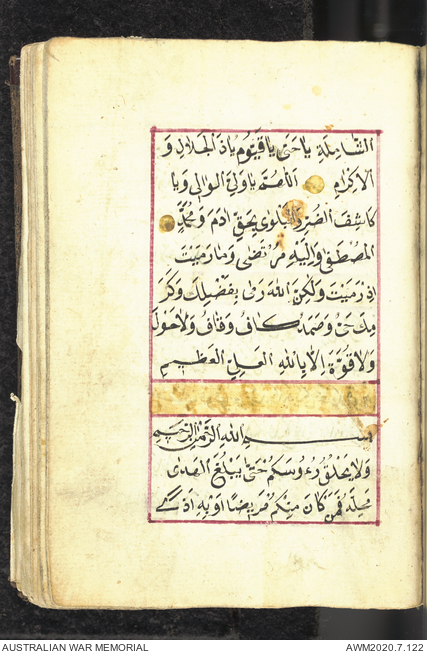 الشَّامِلَةِ يَا حَىُّ يَا قَيُّومُ يَا ذَا الْجَلَالِ وَ
الْاِكْرَامِ اَللّٰهُمَّ يَا وَلِىَّ الْوَالِى وَيَا
كَاشِفَ الضُّرِّ وَالْبَلْوٰى بِحَقِّ اٰدَمَ وَمُحَمَّدٍ
الْمُصْطَفٰى وَ مُرْتَضٰى وَمَا رَمَيْتَ
اِذْ رَمَيْتَ وَلٰكِنَّ اللّٰهَ رَمٰى بِفَضْلِكَ وَكَرَ
مِكَ كَافْ وَقَافْ وَلَا حَوْلَ
وَلَا قُوَّةَ اِلَّا بِاللّٰهِ الْعَلِىِّ الْعَظِيمِ
بسم الله الرحمن الرحيم
وَلَا تَحْلِقُوا رُءُوسَكُمْ حَتّٰى يَبْلُغَ الْهَدْىُ
مَحِلَّهُ فَمَنْ كَانَ مِنْكُمْ مَرِيضًا اَوْ بِهِ اَذًى
AUSTRALIAN WAR MEMORIAL
AWM2020.7.122